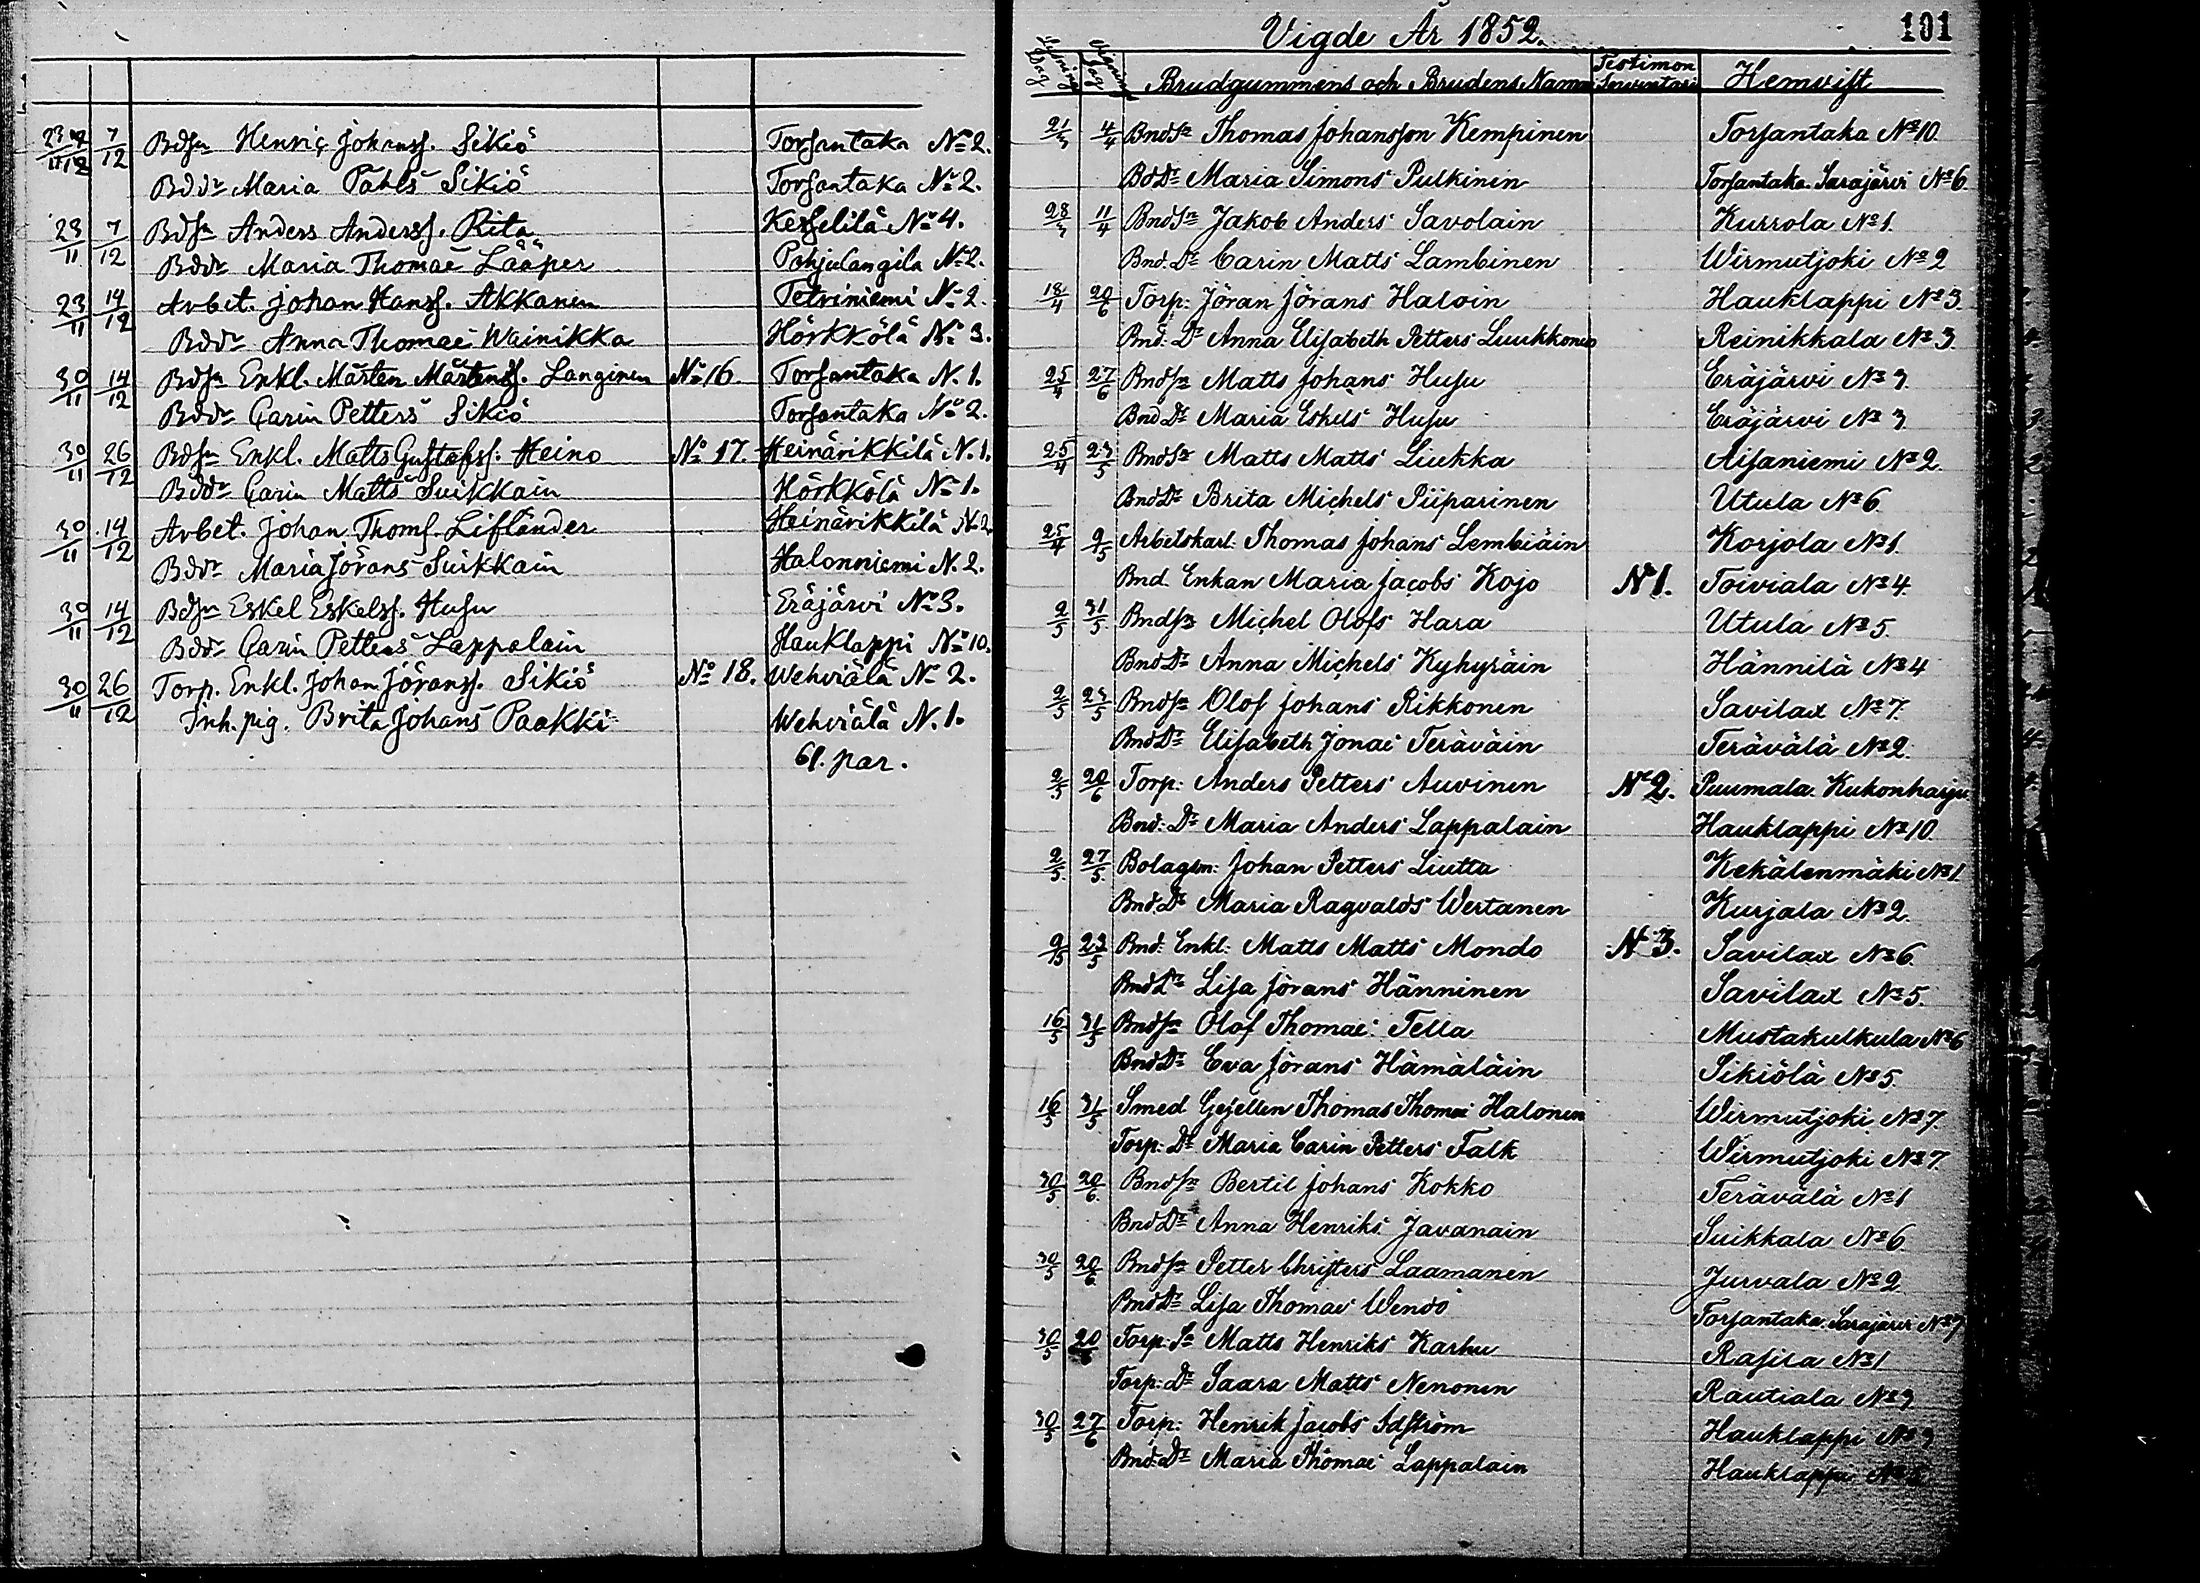 23 7/12 Bdsn Henric Johanss. Sikiö Torsantaka No 2.
Bddr Maria Påhls Sikiö Torsantaka No 2.
23/11 7/12 Bdsn Anders Anderss. Rita Keskelilä No 4.
Bddr Maria Thomae Lääper Pohjalangila No 2.
23/11 14/12 Arbet. Johan Hanss. Akkanen Petriniemi No 2.
Bddr Anna Thomae Wainikka Hörkkölä No 3.
30/11 14/12 Bdsn Enkl. Mårten Mårtenss. Langinen No 16. Torsantaka N. 1.
Bddr Carin Petters Sikiö Torsantaka No 2.
30/11 26/12 Bdsn Enkl. Matts Gustafss. Heino No 17. Heinärikkilä N. 1.
Bddr Carin Matts Suikkain Hörkkölä No 1.
30/11 14/12 Arbet. Johan Thoms. Lifländer Heinärikkilä N. 2.
Bddr Maria Jörans Suikkain Halonniemi N. 2.
30/11 14/12 Bdsn Eskel Eskelss. Husu Eräjärvi No 3.
Bddr Carin Petters Lappalain Hauklappi No 10.
30/11 26/12 Torp. Enkl. Johan Jöranss. Sikiö No 18. Wehviälä No 2.
Inh. pig. Brita Johans Paakki Wehviälä N. 1.
61. par.
Vigde År 1852. 101
Lysnings Dag Vignings Dag Brudgummens och Brudens Namn Testimon Hemvist
21/3 4/4 Bndsn Thomas Johansson Kempinen Torsantaka No 10.
BdDr Maria Simons Pulkinen Torsantaka Sarajärvi No 6
28/3 11/4 Bndsn Jakob Anders Savolain Kurrola No 1.
Bnd. Dr Carin Matts Lambinen Wirmutjoki No 2
18/4 20/6 Torp: Jöran Jörans Haloin Hauklappi No 3.
Bnd. Dr Anna Elisabeth Petters Luukkonen Reinikkala No 3.
25/4 27/6 Bndsn Matts Johans Husu Eräjärvi No 3.
Bnd Dr Maria Eskels Husu Eräjärvi No 3
25/4 23/5 Bndsn Matts Matts Liukka Aisaniemi No 2.
BndDr Brita Michels Piiparinen Utula No 6.
25/4 9/5 Arbetskarl: Thomas Johans Lembiäin Korjola No 1.
Bnd. Enkan Maria Jacobs Kojo No 1. Toiviala No 4.
2/5 31/5 Bndsn Michel Olofs Hara Utula No 5.
BndDr Anna Michels Kyhyräin Hännilä No 4
2/5 23/5 Bndsn Olof Johans Rikkonen Savilax No 7.
BndDr Elisabeth Jonae Teräväin Terävälä No 2.
2/5 20/6 Torp: Anders Petters Auvinen No 2. Puumala. Kukonharju
Bnd: Dr Maria Anders Lappalain Hauklappi No 10.
2/5 27/5 Bolagsm: Johan Petters Liutta Kekälenmäki No 1.
Bnd. Dr Maria Ragvalds Wertanen Kurjala No 2.
9/5 23/5 Bnd: Enkl: Matts Matts Mondo No 3. Savilax No 6.
BndDr Lisa Jörans Hänninen Savilax No 5.
16/5 31/5 Bndsn Olof Thomae Tella Mustakulkula No 6
BndDr Eva Jörans Hämäläin Sikiölä No 5.
16/5 31/5 Smed Gesellen Thomas Thomae Halonen Wirmutjoki No 7.
Torp: Dr Maria Carin Petters Falk Wirmutjoki No 7.
30/5 20/6 Bndsn Bertil Johans Kokko Terävälä No 1
BndDr Anna Henriks Javanain Suikkala No 6.
30/5 20/6 Bndsn Petter Christers Laamanen Jurvala No 2
BndDr Lisa Thomae Wendo Torsantaka. Sarajärvi No 7
30/5 20/6 Torp: Sn Matts Henriks Karhu Rasila No 1
Torp: Dr Saara Matts Nenonen Rautiala No 3
30/5 27/6 Torp: Henrik Jacobs Idström Hauklappi No 3
Bnd: Dr Maria Thomae Lappalain Hauklappi